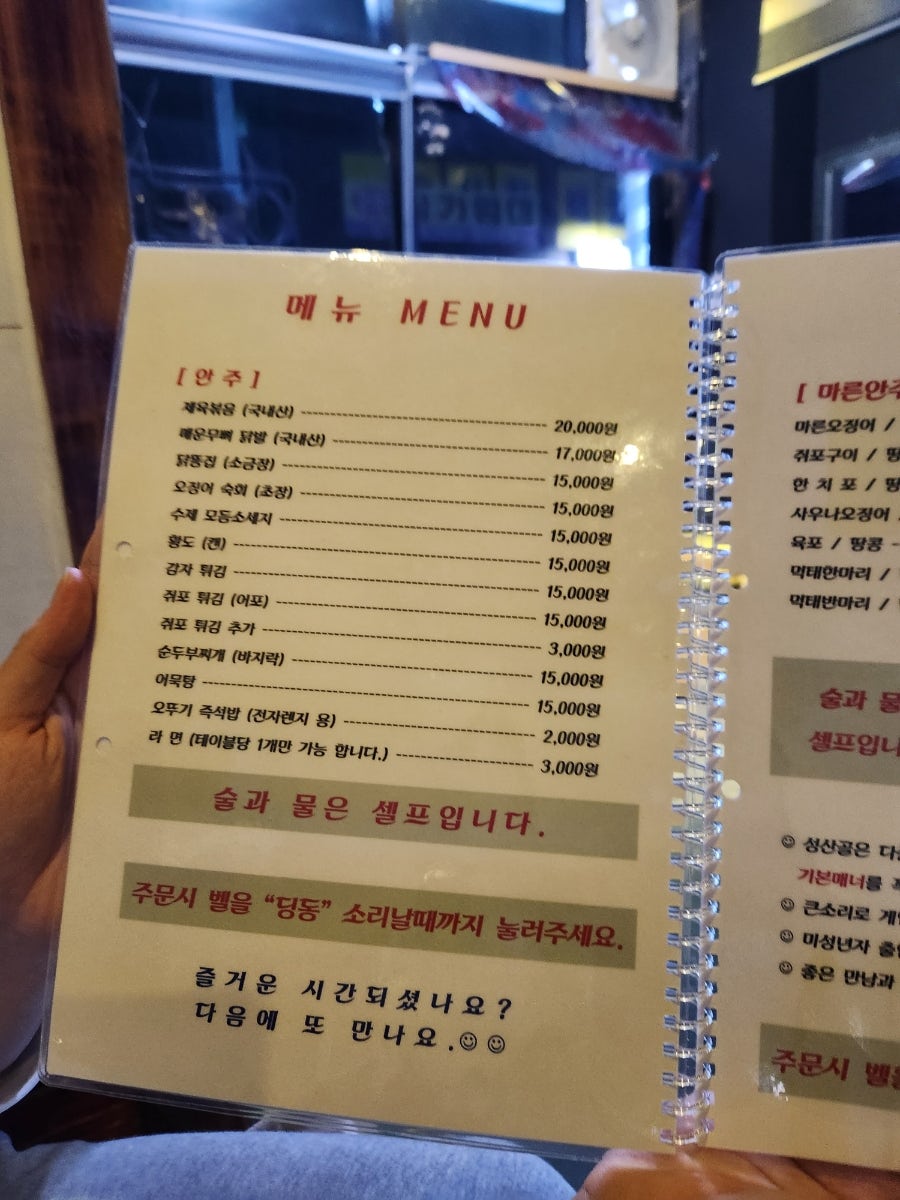 메뉴 MENU
[안주]
제육볶음 (국내산) 20,000원
매운무뼈 닭발 (국내산) 17,000원
닭똥집 (소금장) 15,000원
오징어 숙회 (초장) 15,000원
수제 모듬소세지 15,000원
황도 (캔) 15,000원
감자 튀김 15,000원
쥐포 튀김 (어포) 15,000원
쥐포 튀김 추가 3,000원
순두부찌개 (바지락) 15,000원
어묵탕 15,000원
오뚜기 즉석밥 (전자렌지 용) 2,000원
라 면 (테이블당 1개만 가능 합니다.) 3,000원
술과 물은 셀프입니다.
주문시 벨을 “딩동” 소리날때까지 눌러주세요.
즐거운 시간되셨나요?
다음에 또 만나요.☺☺
[ 마른안주
마른오징어 /
쥐포구이 / 땅
한 치 포 / 땅
사우나오징어
육포 / 땅콩
먹태한마리 /
먹태반마리 /
술과 물
셀프입니
☺ 성산골은 다
기본매너를
☺ 큰소리로
☺ 미성년자 출
☺ 좋은 만남과
주문시 벨을